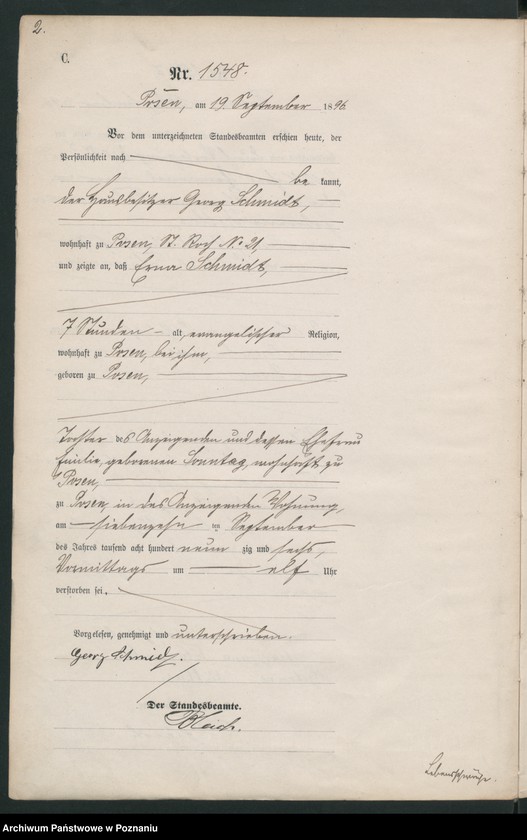 2.
C.
Nr. 1548.
Posen, am 19. September 1896
Vor dem unterzeichneten Standesbeamten erschien heute, der
Persönlichkeit nach
be kannt,
der Hausbesitzer Georg Schmidt,
wohnhaft zu Posen, St. Roch No 21,
und zeigte an, daß Erna Schmidt,
7 Stunden alt, evangelischer Religion,
wohnhaft zu Posen, bei ihm,
geboren zu Posen,
Tochter des Anzeigenden und dessen Ehefrau
Emilie, geborenen Sonntag, wohnhaft zu
Posen,
zu Posen, in des Anzeigenden Wohnung,
am siebenzehn ten September
des Jahres tausend acht hundert neun zig und sechs,
Vormittags um elf Uhr
verstorben sei.
Vorgelesen, genehmigt und unterschrieben.
Georg Schmidt.
Der Standesbeamte.
Lebensschwäche.
Archiwum Państwowe w Poznaniu